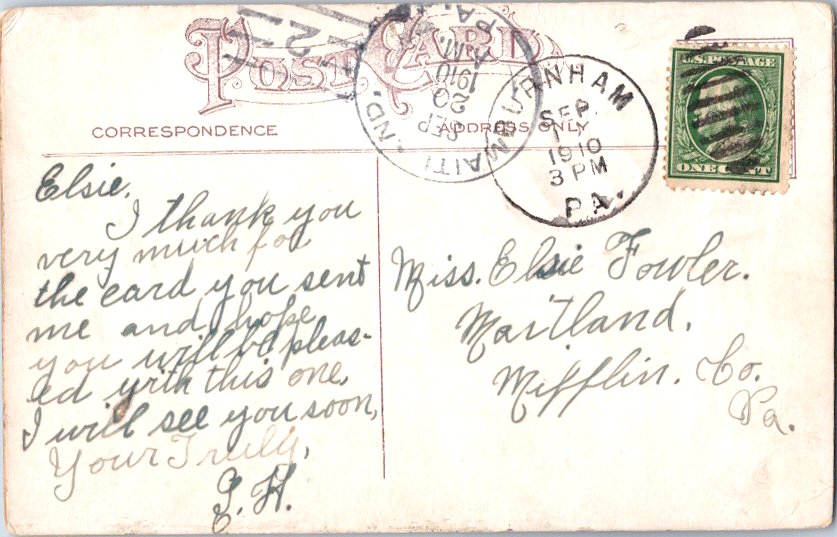 POST CARD
CORRESPONDENCE
ADDRESS ONLY
MAITLAND.
PA.
SEP
20
A.M.
1910
2
BURNHAM
SEP
1910
3 PM
PA.
U.S. POSTAGE
ONE CENT
Elsie.
I thank you
very much for
the card you sent
me and hope
you will be pleas-
ed with this one.
I will see you soon,
Your Truly,
Miss. Elsie Fowler.
Maitland,
Mifflin. Co.
Pa.